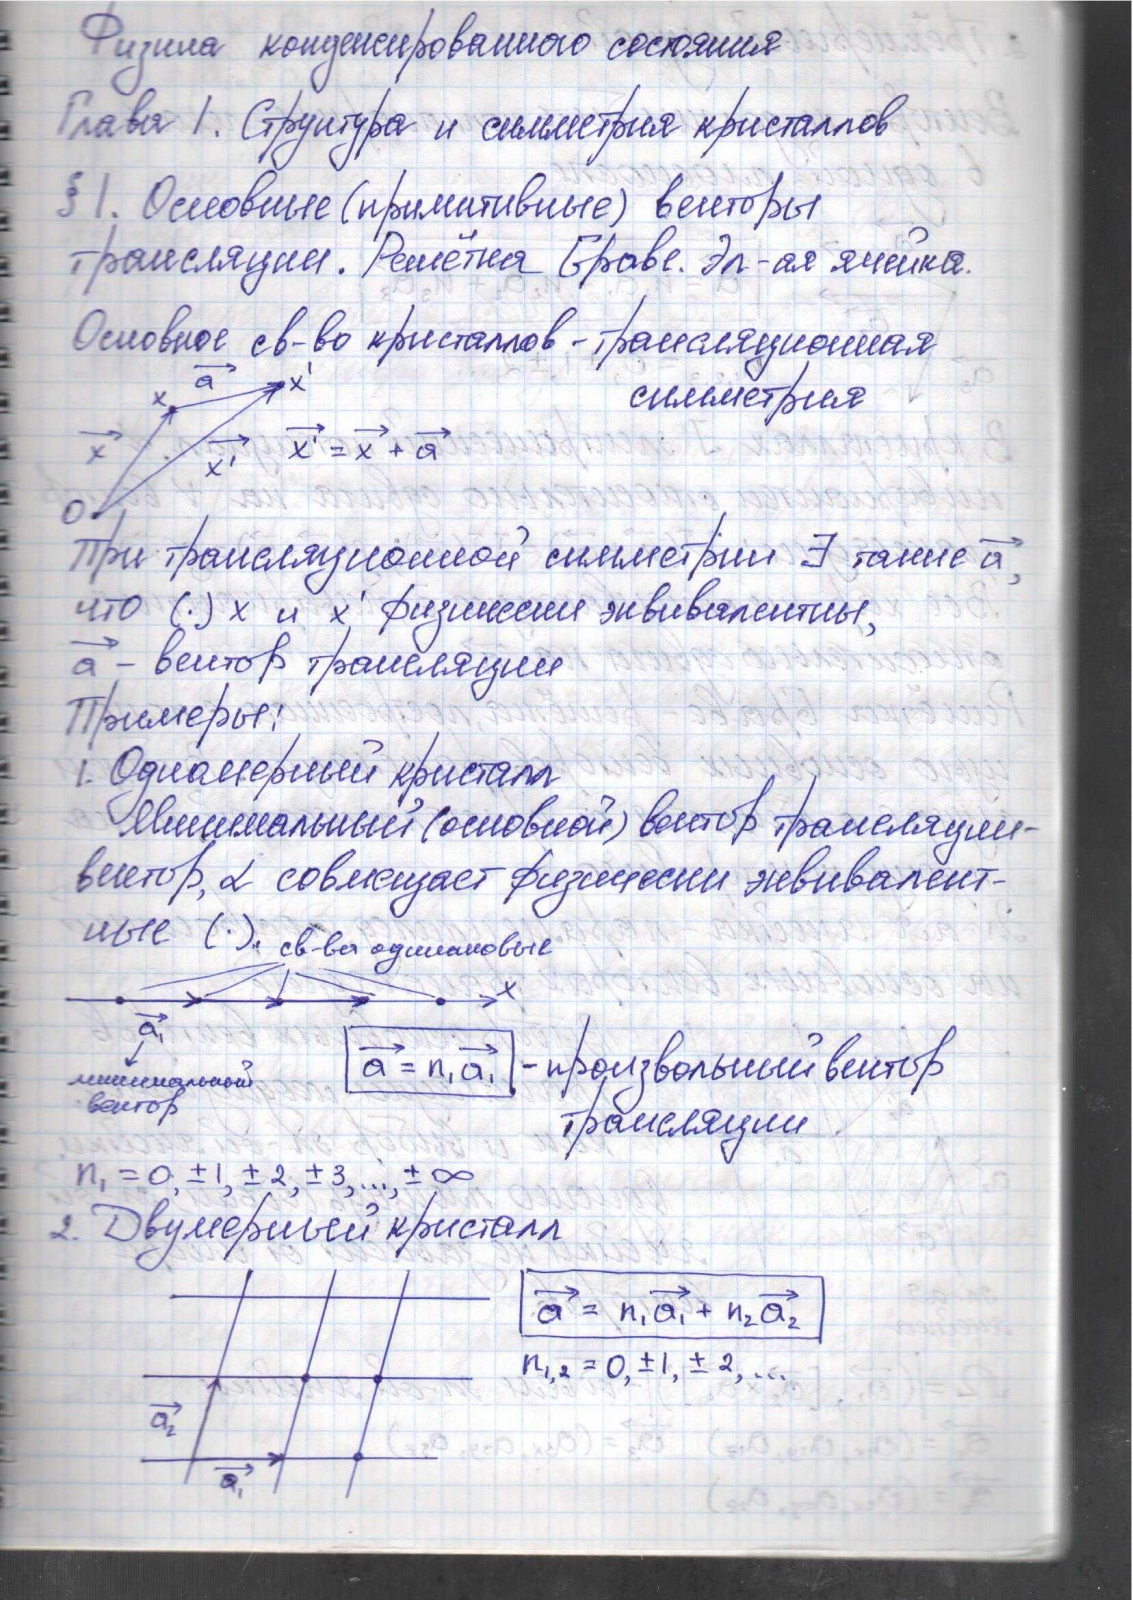 Физика конденсированного состояния
Глава 1. Структура и симметрия кристаллов
§1. Основные (примитивные) векторы
трансляции. Решётка Браве. Эл-ая ячейка.
Основное св-во кристаллов - трансляционная
симметрия
x a⃗ x'
x⃗ x⃗' x⃗' = x⃗ + a⃗
O
При трансляционной симметрии ∃ такие a⃗,
что (·) x и x' физически эквивалентны,
a⃗ - вектор трансляции
Примеры:
1. Одномерный кристалл
Минимальный (основной) вектор трансляции-
вектор, α совмещает физически эквивалент-
ные (·).
св-ва одинаковые
x
a⃗₁
минимальный
вектор
a⃗ = n₁a⃗₁ - произвольный вектор
трансляции
n₁ = 0, ±1, ±2, ±3, ..., ±∞
2. Двумерный кристалл
a⃗ = n₁a⃗₁ + n₂a⃗₂
n₁,₂ = 0, ±1, ±2, ...
a⃗₂
a⃗₁